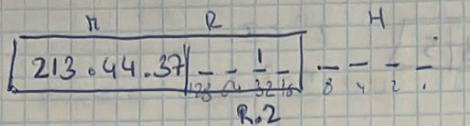 n R H
213.44.37 _ _ 1 _ _ _ _ _
128 64 32 16 8 4 2 1
R.2